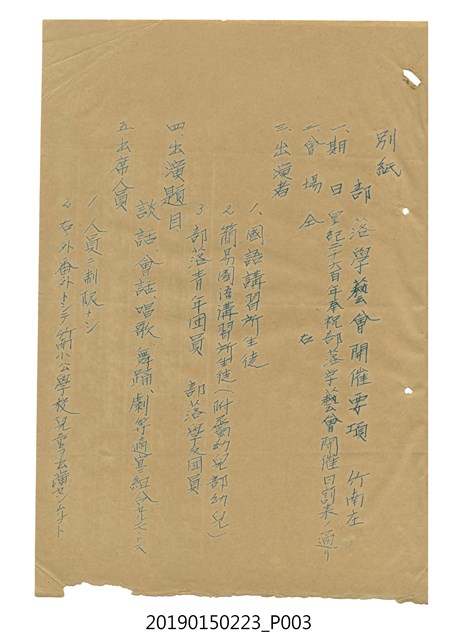 別紙
部落學藝會開催要項 竹南庄
一、期 日 皇紀二千六百年奉祝部落學藝會開催日割表ノ通リ
二、會 場 仝 右
三、出演者
1、國語講習所生徒
2、簡易國語講習所生徒(附設幼兒部幼兒)
3、部落青年團員 部落學 團員
四、出演題目
談話、會話、唱歌、舞踊、劇等適宜組合
五、出席人員
1、人員ニ制限ナシ
2、右外番外トシテ竹南小公學校兒童 出演セシムルコト
20190150223_P003